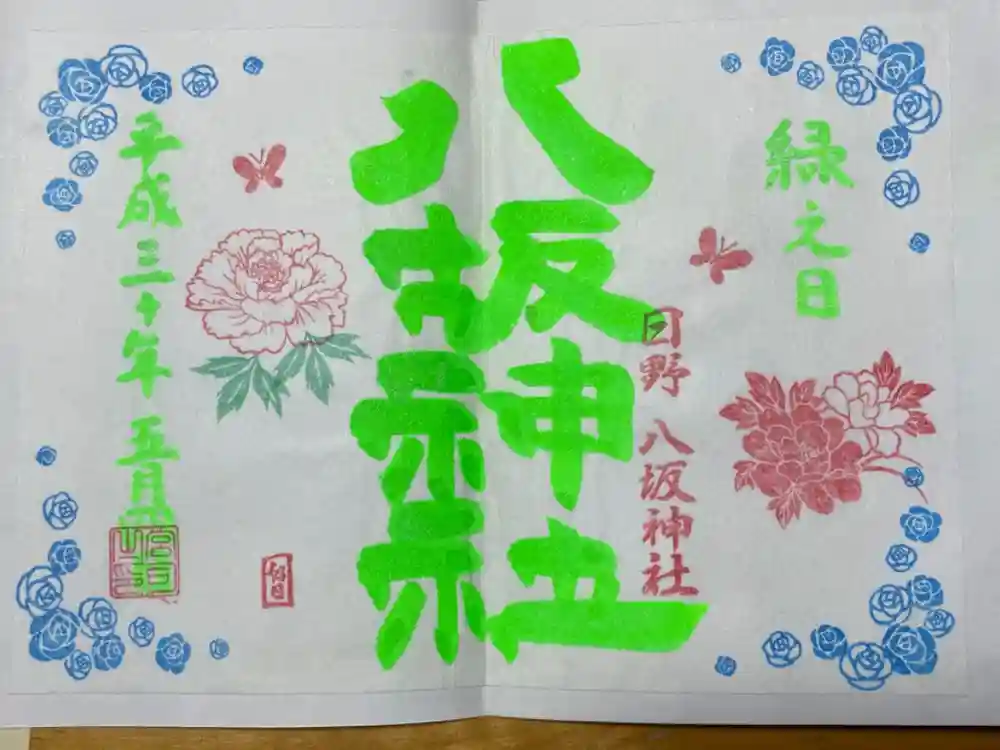 緑之日
日野 八坂神社
八坂神社
平成三十年 五月